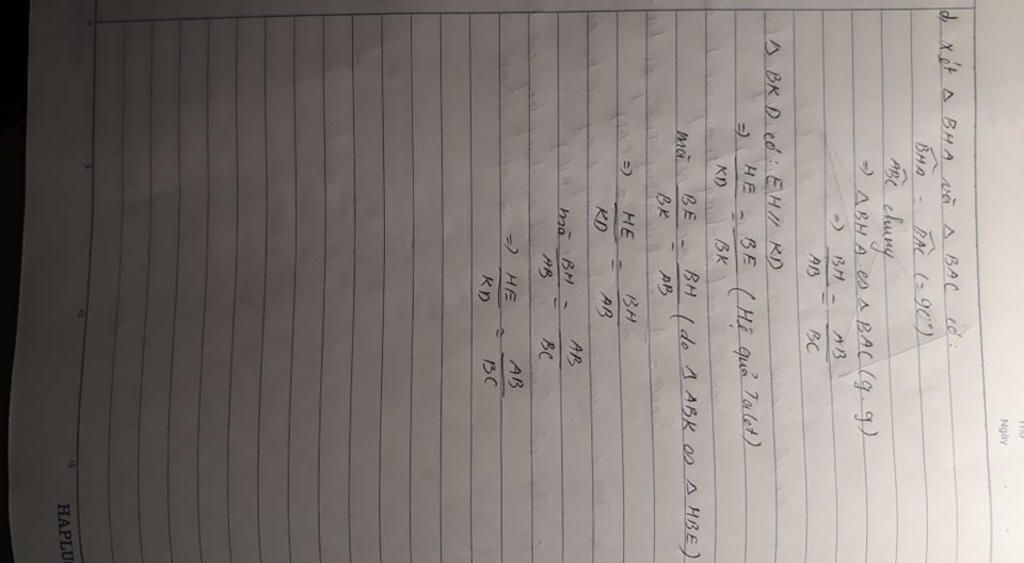 d, Xét △ BHA và △ BAC có:
BHA = BAC (= 90°)
ABC chung
=> △BHA ∽ △BAC (g.g)
=> BH/AB = AB/BC
△ BKD có: EH // KD
=> HE/KD = BE/BK (Hệ quả Talet)
mà BE/BK = BH/AB (do △ ABK ∽ △ HBE)
=> HE/KD = BH/AB
mà BH/AB = AB/BC
=> HE/KD = AB/BC
Ngày
5
10
15